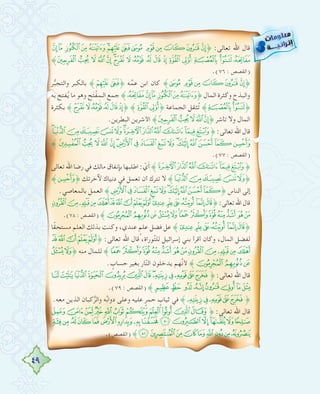 معلومات إثرائية
قال الله تعالى: ﴿إِنَّ قَارُونَ كَانَ مِن قَوْمِ مُوسَىٰ فَبَغَىٰ عَلَيْهِمْ وَءَاتَيْنَاهُ مِنَ الْكُنُوزِ مَا إِنَّ
مَفَاتِحَهُ لَتَنُوأُ بِالْعُصْبَةِ أُولِي الْقُوَّةِ إِذْ قَالَ لَهُ قَوْمُهُ لَا تَفْرَحْ إِنَّ اللَّهَ لَا يُحِبُّ الْفَرِحِينَ﴾
(القصص: ٧٦).
﴿إِنَّ قَارُونَ كَانَ مِن قَوْمِ مُوسَىٰ﴾ كان ابن عمّه ﴿فَبَغَىٰ عَلَيْهِمْ﴾ بالكبر والتجبّر
والبذخ وكثرة المال ﴿وَءَاتَيْنَاهُ مِنَ الْكُنُوزِ مَا إِنَّ مَفَاتِحَهُ﴾ جمع المفتح وهو ما يُفتح به
﴿لَتَنُوأُ بِالْعُصْبَةِ﴾ تُثقل الجماعة ﴿أُولِي الْقُوَّةِ﴾ ﴿إِذْ قَالَ لَهُ قَوْمُهُ لَا تَفْرَحْ﴾ بكثرة
المال ولا تأشر ﴿إِنَّ اللَّهَ لَا يُحِبُّ الْفَرِحِينَ﴾ الأشرين البطرين.
قال الله تعالى: ﴿وَابْتَغِ فِيمَا ءَاتَاكَ اللَّهُ الدَّارَ الْآخِرَةَ وَلَا تَنسَ نَصِيبَكَ مِنَ الدُّنْيَا
وَأَحْسِن كَمَا أَحْسَنَ اللَّهُ إِلَيْكَ وَلَا تَبْغِ الْفَسَادَ فِي الْأَرْضِ إِنَّ اللَّهَ لَا يُحِبُّ الْمُفْسِدِينَ﴾
(القصص: ٧٧).
﴿وَابْتَغِ فِيمَا ءَاتَاكَ اللَّهُ الدَّارَ الْآخِرَةَ﴾ أي: اطلبها بإنفاق مالك في رضا الله تعالى
﴿وَلَا تَنسَ نَصِيبَكَ مِنَ الدُّنْيَا﴾ لا تترك أن تعمل في دنياك لآخرتك ﴿وَأَحْسِن﴾
إلى الناس ﴿كَمَا أَحْسَنَ اللَّهُ إِلَيْكَ وَلَا تَبْغِ الْفَسَادَ فِي الْأَرْضِ﴾ العمل بالمعاصي.
قال الله تعالى: ﴿قَالَ إِنَّمَا أُوتِيتُهُ عَلَىٰ عِلْمٍ عِندِي أَوَلَمْ يَعْلَمْ أَنَّ اللَّهَ قَدْ أَهْلَكَ مِن قَبْلِهِ مِنَ الْقُرُونِ
مَنْ هُوَ أَشَدُّ مِنْهُ قُوَّةً وَأَكْثَرُ جَمْعًا وَلَا يُسْأَلُ عَن ذُنُوبِهِمُ الْمُجْرِمُونَ﴾ (القصص: ٧٨).
﴿قَالَ إِنَّمَا أُوتِيتُهُ عَلَىٰ عِلْمٍ عِندِي﴾ على فضل علم عندي، و كنت بذلك العلم مستحقًا
لفضل المال، وكان أقرأ بني إسرائيل للتوراة، قال الله تعالى: ﴿أَوَلَمْ يَعْلَمْ أَنَّ اللَّهَ قَدْ
أَهْلَكَ مِن قَبْلِهِ مِنَ الْقُرُونِ مَنْ هُوَ أَشَدُّ مِنْهُ قُوَّةً وَأَكْثَرُ جَمْعًا﴾ للمال منه ﴿وَلَا يُسْأَلُ
عَن ذُنُوبِهِمُ الْمُجْرِمُونَ﴾ لأنهم يدخلون النار بغير حساب.
قال الله تعالى: ﴿فَخَرَجَ عَلَىٰ قَوْمِهِ فِي زِينَتِهِ قَالَ الَّذِينَ يُرِيدُونَ الْحَيَاةَ الدُّنْيَا يَا لَيْتَ لَنَا
مِثْلَ مَا أُوتِيَ قَارُونُ إِنَّهُ لَذُو حَظٍّ عَظِيمٍ﴾ (القصص: ٧٩).
﴿فَخَرَجَ عَلَىٰ قَوْمِهِ فِي زِينَتِهِ﴾ في ثياب حمر عليه وعلى دوابّه والرّكبان الذين معه.
قال الله تعالى: ﴿وَقَالَ الَّذِينَ أُوتُوا الْعِلْمَ وَيْلَكُمْ ثَوَابُ اللَّهِ خَيْرٌ لِّمَنْ ءَامَنَ وَعَمِلَ
صَالِحًا وَلَا يُلَقَّاهَا إِلَّا الصَّابِرُونَ ۝٨٠ فَخَسَفْنَا بِهِ وَبِدَارِهِ الْأَرْضَ فَمَا كَانَ لَهُ مِن فِئَةٍ
يَنصُرُونَهُ مِن دُونِ اللَّهِ وَمَا كَانَ مِنَ الْمُنتَصِرِينَ ۝٨١﴾ (القصص).
٤٩